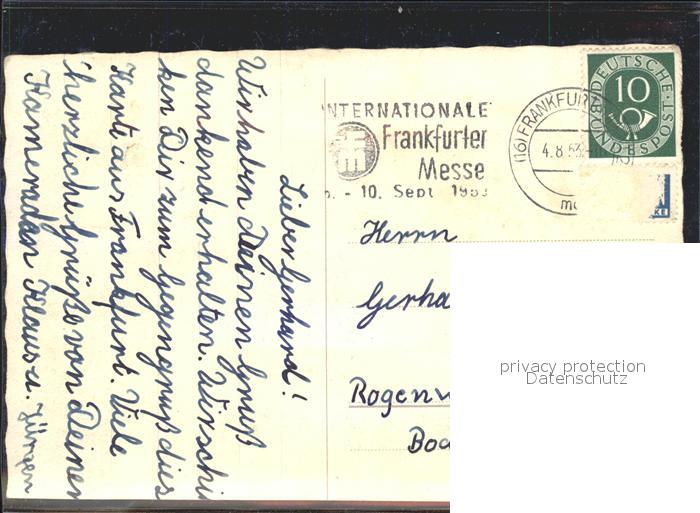 Lieber Gerhard!
Wir haben Deinen Gruß
dankend erhalten. Wir schi
ken Dir zum Gegengruß dies
Karte aus Frankfurt. Viele
herzliche Grüße von Deinen
Kameraden Klaus u. Jürgen
INTERNATIONALE
Frankfurter
Messe
- 10. Sept. 1953
(16) FRANKFURT
4.8.53
DEUTSCHE
BUNDESPOST
10
Herrn
Gerha
Rogenw
Boc
privacy protection
Datenschutz